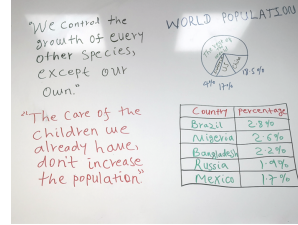 "We control the
growth of every
other species,
except our
own."
"The care of the
children we
already have,
don't increase
the population."
WORLD POPULATION
18.5%
17%
Country percentage
Brazil 2.8%
Nigeria 2.6%
Bangladesh 2.2%
Russia 1.9%
Mexico 1.7%